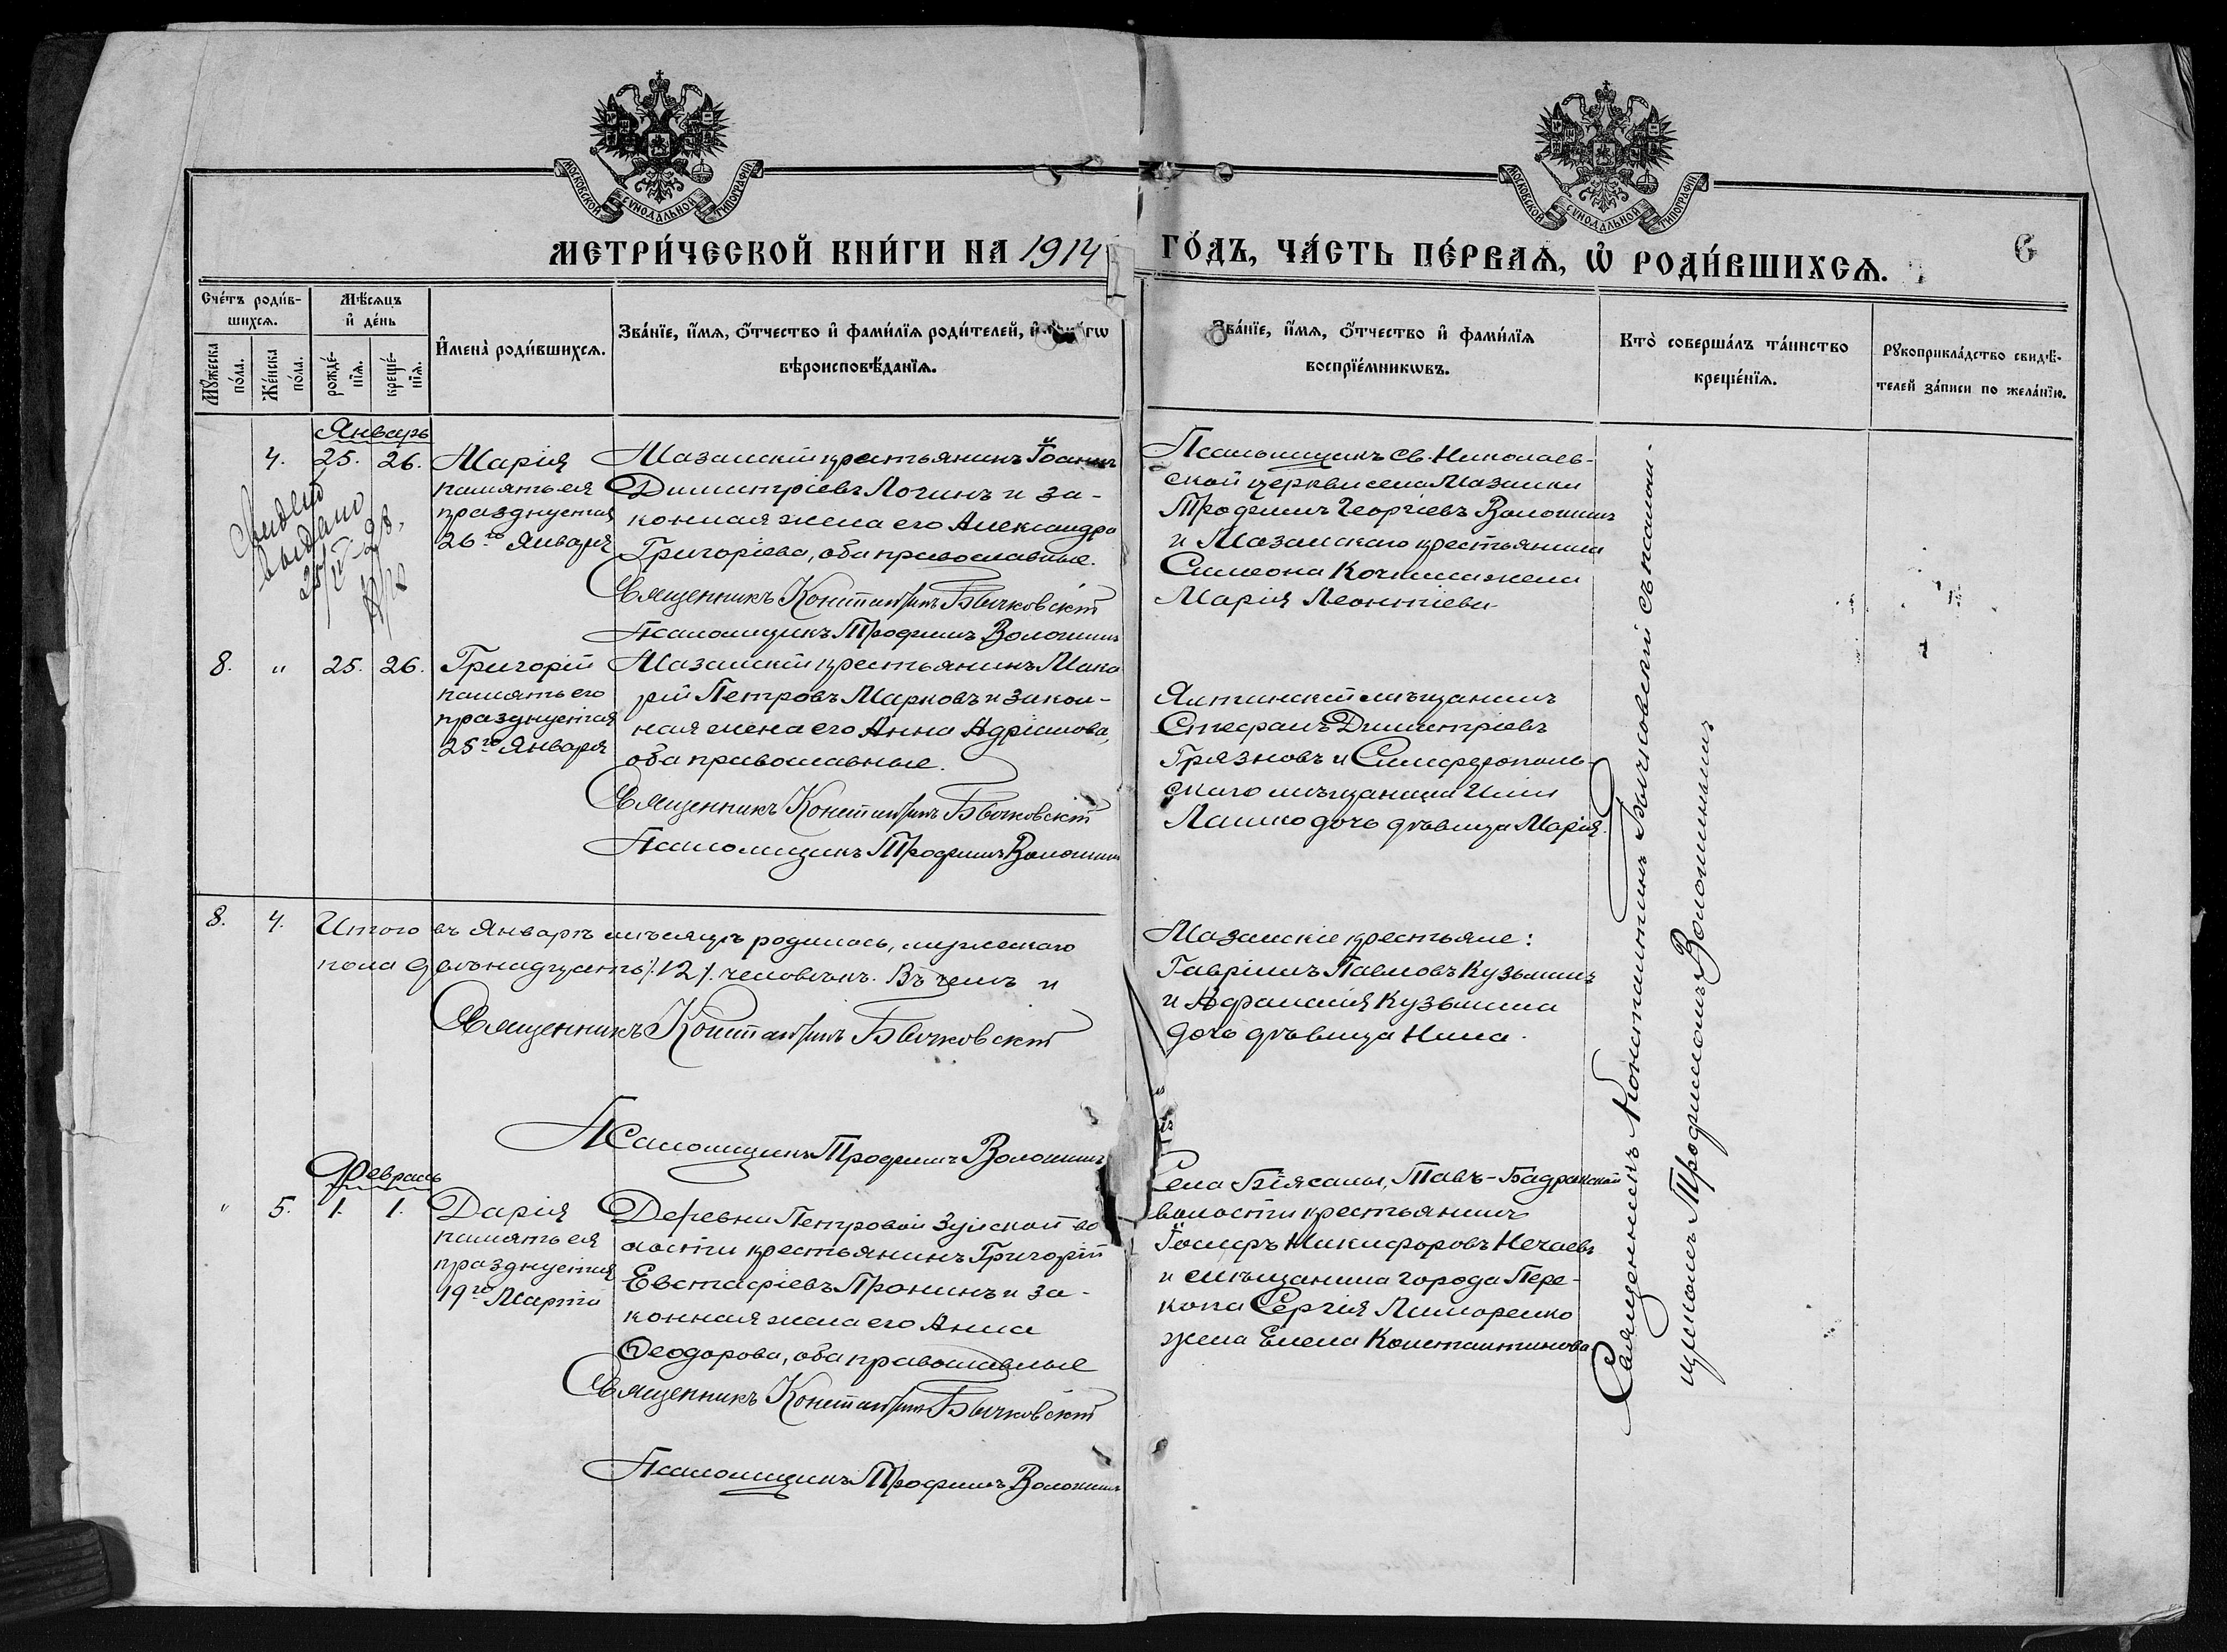 МОСКОВСКОЙ СѴНОДАЛЬНОЙ ТИПОГРАФІИ
МОСКОВСКОЙ СѴНОДАЛЬНОЙ ТИПОГРАФІИ
МЕТРИ́ЧЕСКОЙ КНИ́ГИ НА 1914
ГО́ДЪ, ЧА́СТЬ ПЕ́РВАѦ, Ѡ҆ РОДИ́ВШИХСѦ.
6
Сче́тъ роди́в-
шихсѧ.
Мꙋ́жеска по́ла.
Же́нска по́ла.
Мѣ́сѧцъ
и҆ де́нь
рожде́-
нїѧ.
креще́-
нїѧ.
И҆мена̀ роди́вшихсѧ.
Зва́нїе, и҆́мѧ, ѻ҆́тчество и҆ фами́лїѧ роди́телей, и҆
вѣроисповѣ́данїѧ.
Зва́нїе, и҆́мѧ, ѻ҆́тчество и҆ фами́лїѧ
воспрїе́мникѡвъ.
Кто̀ соверша́лъ та́инство
креще́нїѧ.
Рꙋкоприкла́дство свидѣ́-
телей за́писи по жела́нїю.
Январь
4. 25. 26.
Марія
память ея
празднуется
26го Января
Мазанскій крестьянинъ Іоаннъ
Димитріевъ Логинъ и за-
конная жена его Александра
Григоріева, оба православные.
Священникъ Константинъ Бычковскій
Псаломщикъ Трофимъ Волошинъ
Псаломщикъ Св. Николаев-
ской церкви села Мазанки
Трофимъ Георгіевъ Волошинъ
и Мазанскаго крестьянина
Симеона жена
Марія Леонтіева
выдано
25/IV-28.
8. " 25. 26.
Григорій
память его
празднуется
25го Января
Мазанскій крестьянинъ Мака
рій Петровъ Марковъ и закон-
ная жена его Анна Адріанова,
оба православные.
Священникъ Константинъ Бычковскій
Псаломщикъ Трофимъ Волошинъ
Ялтинскій мѣщанинъ
Стефанъ Димитріевъ
Грязновъ и Симферополь-
скаго мѣщанина Иліи
Лашко дочь дѣвица Марія.
8. 4. Итого въ Январѣ мѣсяцѣ родилось, мужескаго
пола двѣнадцать /.12/. человѣкъ. Въ чемъ и
Священникъ Константинъ Бычковскій
Псаломщикъ Трофимъ Волошинъ
Мазанскіе крестьяне:
Гавріилъ Павловъ Кузьминъ
и Афанасія Кузьмина
дочь дѣвица Нина.
Февраль
" 5. 1. 1.
Дарія
память ея
празднуется
19го Марта
Деревни Петровой Зуйской во
лости крестьянинъ Григорій
Евстафіевъ Пронинъ и за-
конная жена его Анна
Ѳеодорова, оба православные
Священникъ Константинъ Бычковскій
Псаломщикъ Трофимъ Волошинъ
Села Біясалы, Тавъ-Бадракской
волости крестьянинъ
Іосифъ Никифоровъ Нечаевъ
и мѣщанина города Пере-
копа Сергія Лимаренко
жена Елена Константинова
Священникъ Константинъ Бычковскій съ псалом-
щикомъ Трофимомъ Волошинымъ